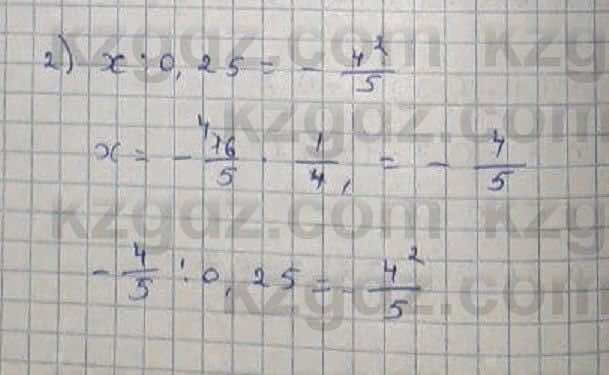 2) x : 0,25 = - 4²/5
x = - ⁴16/5 · 1/4₁ = - 4/5
- 4/5 : 0,25 = - 4²/5
kzgdz.com kzg
kzgdz.com
kzgdz.com kzg
kzgdz.com